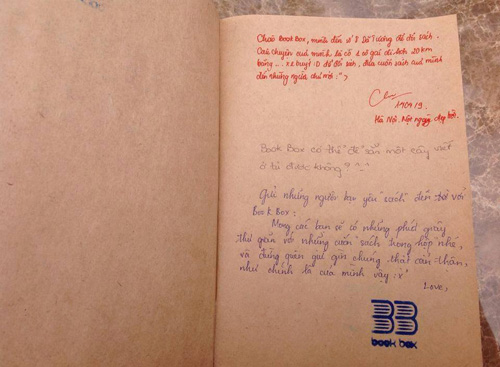 Chào BookBox, mình đến vì ý tưởng để đổi sách.
Câu chuyện của mình là có 1 cô gái đi hơn 20km
bằng ... xe buýt :D để đổi sách, đưa cuốn sách của mình
đến những người chủ mới :">
190919.
Hà Nội. Một ngày đẹp trời.
Book Box có thể "để" sẵn một cây viết
ở tủ được không? ^^
Gửi những người bạn yêu "sách" đến với
Book Box:
Mong các bạn sẽ có những phút giây
thư giãn với những cuốn sách trong hộp nhé,
và đừng quên giữ gìn chúng thật cẩn thận,
như chính là của mình vậy :x"
Love,
BB
book box